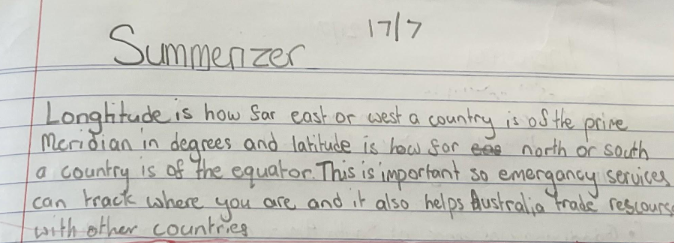 17/7
Summerizer
Longhitude is how far east or west a country is of the prine
Meridian in degrees and latitude is how far north or south
a country is of the equator. This is important so emergancy services
can track where you are and it also helps Australia trade rescources
with other countries